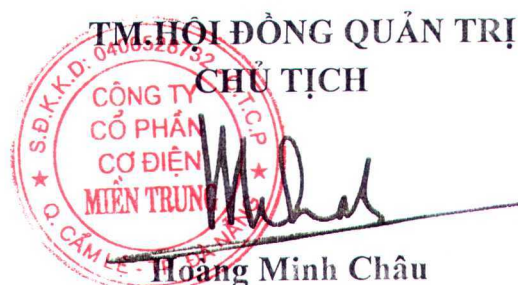 TM.HỘI ĐỒNG QUẢN TRỊ
CHỦ TỊCH
S.Đ.K.K.D: 0400528732
T.C.P
CÔNG TY
CỔ PHẦN
CƠ ĐIỆN
MIỀN TRUNG
Q. CẨM LỆ - TP. ĐÀ NẴNG
Hoàng Minh Châu